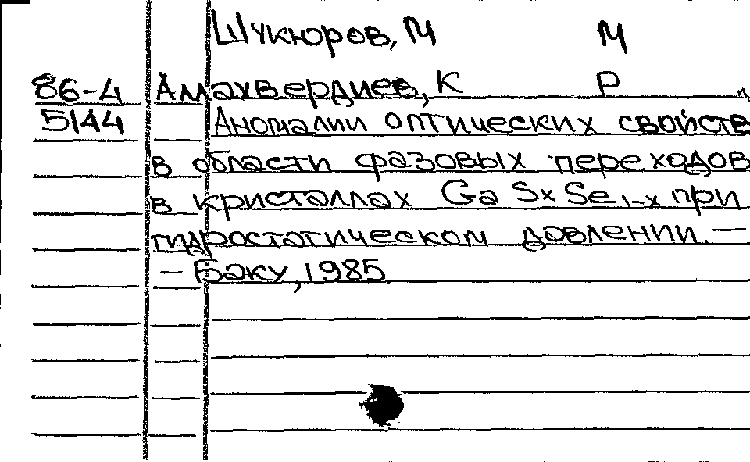 Шукюров, М М
86-4 Амахвердиев, К Р
5144 Аномалии оптических свойств
в области фазовых переходов
в кристаллах Ga Sx Se1-x при
гидростатическом давлении. —
— Баку, 1985